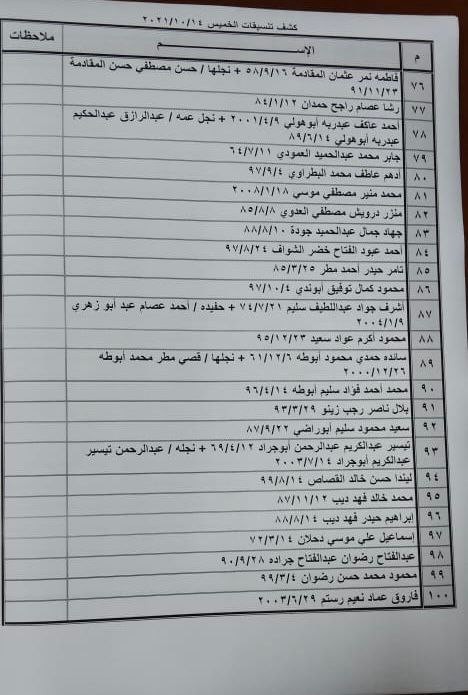 كشف تنسيقات الخميس ٢٠٢١/١٠/١٤
م الإســـــم ملاحظات
٧٦ فاطمه نمر عثمان المقادمة ٥٨/٩/١٦ + نجلها / حسن مصطفي حسن المقادمة
٩١/١١/٢٣
٧٧ رشا عصام راجح حمدان ٨٤/١/١٢
٧٨ أحمد عاكف عبدربه أبوهولي ٢٠٠١/٤/٩ + نجل عمه / عبدالرازق عبدالحكيم
عبدربه أبوهولي ٨٩/٦/١٤
٧٩ جابر محمد عبدالحميد العمودي ٦٤/٧/١١
٨٠ أدهم عاطف محمد البطراوي ٩٧/٩/٤
٨١ محمد منير مصطفي موسي ٢٠٠٨/١/١٨
٨٢ منزر درويش مصطفي العدوي ٨٥/٨/٨
٨٣ جهاد جمال عبدالحميد جودة ٨٨/٨/١٠
٨٤ أحمد عبود الفتاح خضر الشواف ٩٧/٨/٢٤
٨٥ تامر حيدر أحمد مطر ٨٥/٣/٢٥
٨٦ محمود كمال توفيق أبوندي ٩٧/١٠/٤
٨٧ أشرف جواد عبداللطيف سليم ٧٤/٧/٢١ + حفيده / أحمد عصام عبد أبو زهري
٢٠٠٤/١/٩
٨٨ محمود أكرم عواد سعيد ٩٥/١٢/٢٣
٨٩ سانده حمدي محمود أبوطه ٦١/١٢/٦ + نجلها / قصي مطر محمد أبوطه
٢٠٠٠/١٢/٢٦
٩٠ محمد أحمد فؤاد سليم أبوطه ٩٦/٤/١٤
٩١ بلال ناصر رجب زينو ٩٣/٣/٢٩
٩٢ سعيد محمود سليم أبوراضي ٨٧/٩/٢٢
٩٣ تيسير عبدالكريم عبدالرحمن أبوجراد ٦٩/٤/١٢ + نجله / عبدالرحمن تيسير
عبدالكريم أبوجراد ٢٠٠٣/٧/١٤
٩٤ ليندا حسن خالد القصاص ٩٩/٨/١٤
٩٥ محمد خالد فهد ديب ٨٧/١١/١٢
٩٦ إبراهيم حيدر فهد ديب ٨٨/٨/١٤
٩٧ إسماعيل علي موسي دحلان ٧٢/٣/١٤
٩٨ عبدالفتاح رضوان عبدالفتاح جراده ٩٠/٩/٢٨
٩٩ محمود محمد حسن رضوان ٩٩/٣/٤
١٠٠ فاروق عماد نعيم رستم ٢٠٠٣/٦/٢٩